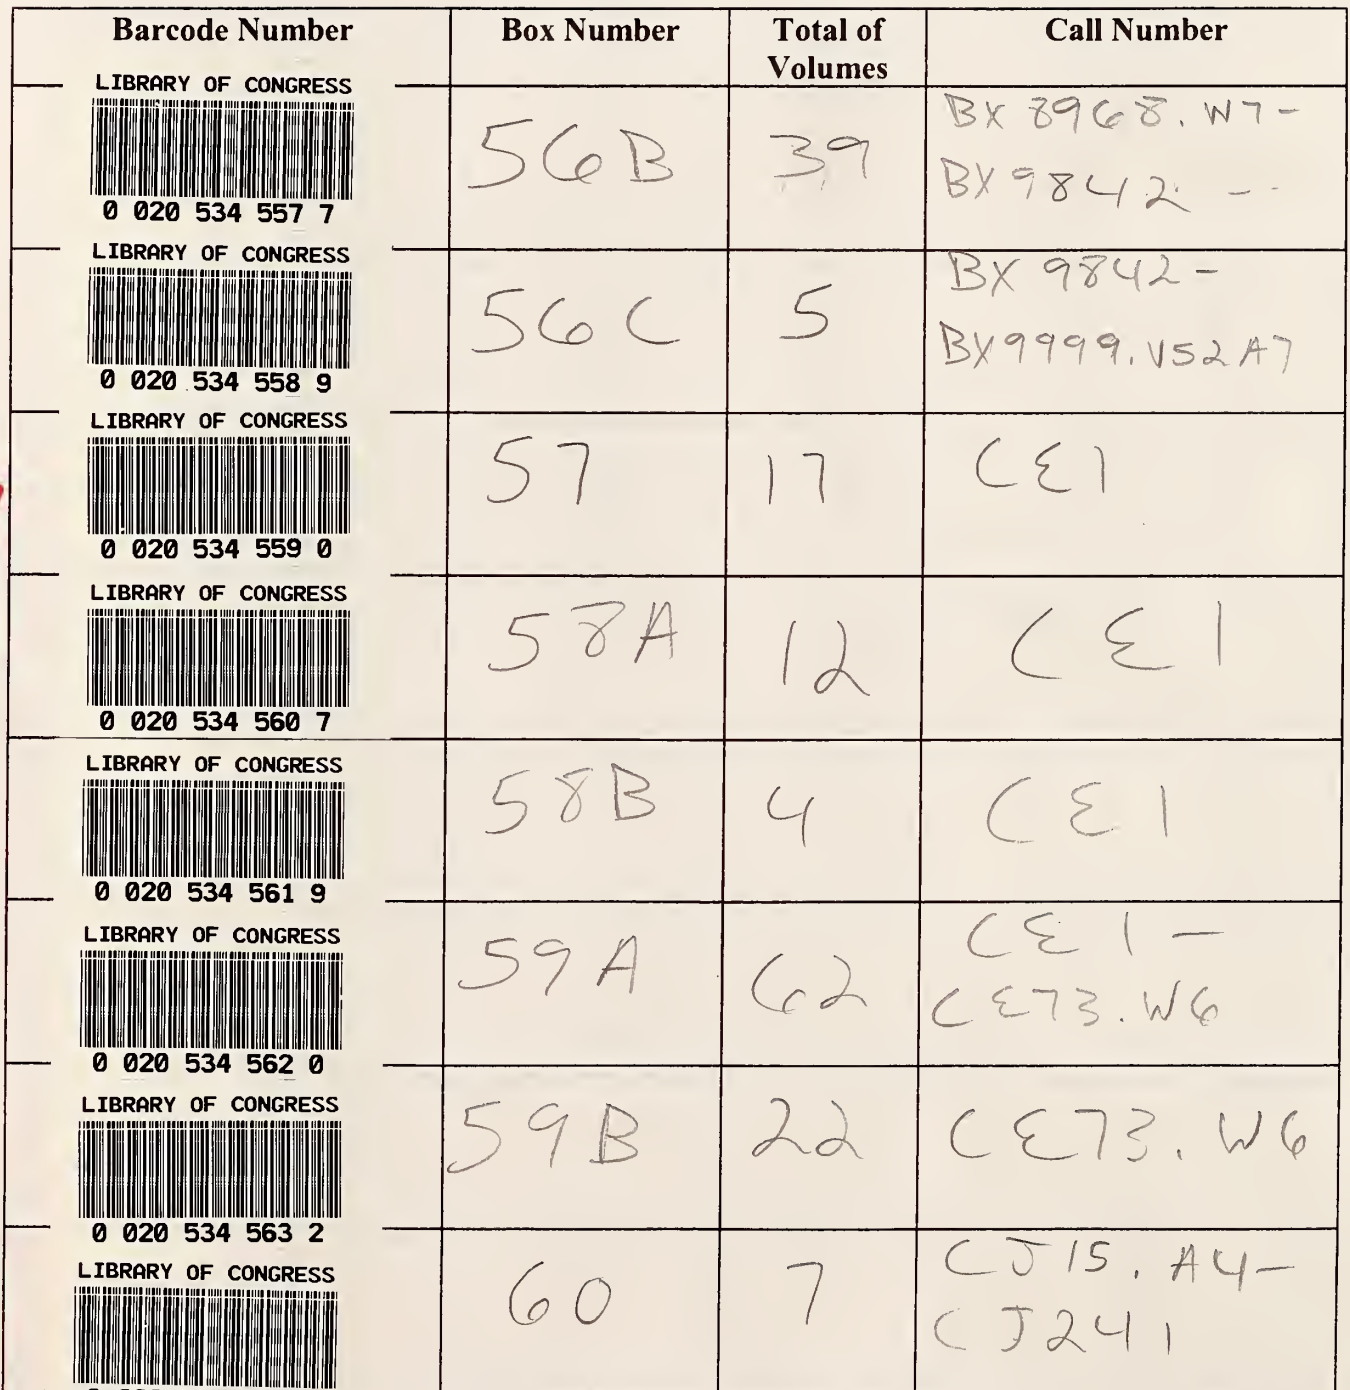 Barcode Number Box Number Total of Volumes Call Number
LIBRARY OF CONGRESS
0 020 534 557 7
56B 39 BX 8968. W7-
BX9842 --
LIBRARY OF CONGRESS
0 020 534 558 9
56C 5 BX 9842-
BX9999. V52 A7
LIBRARY OF CONGRESS
0 020 534 559 0
57 17 CE1
LIBRARY OF CONGRESS
0 020 534 560 7
58A 12 CE1
LIBRARY OF CONGRESS
0 020 534 561 9
58B 4 CE1
LIBRARY OF CONGRESS
0 020 534 562 0
59A 62 CE1-
CE73. W6
LIBRARY OF CONGRESS
0 020 534 563 2
59B 22 CE73. W6
LIBRARY OF CONGRESS
60 7 CJ15. A4-
CJ241